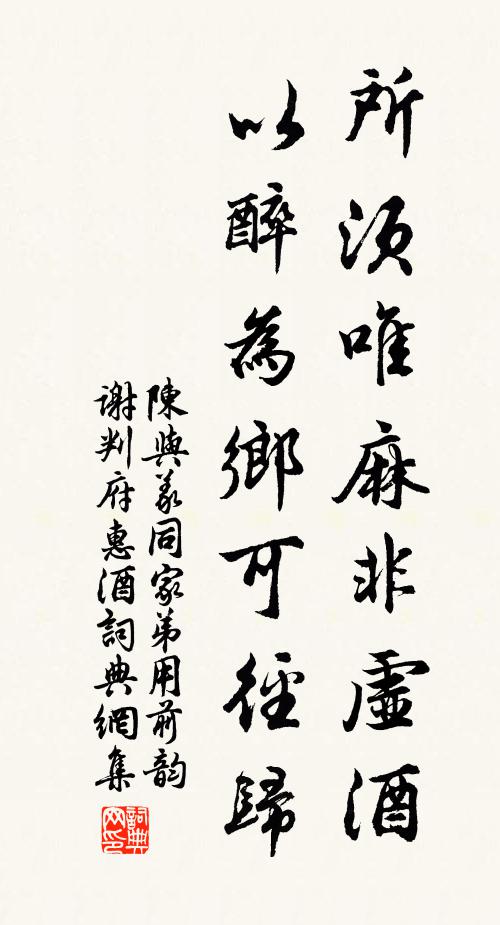 所須唯麻非虛酒
以醉為鄉可徑歸
陳與義同家弟用前韵
謝判府惠酒詞典網集
詞典
网印